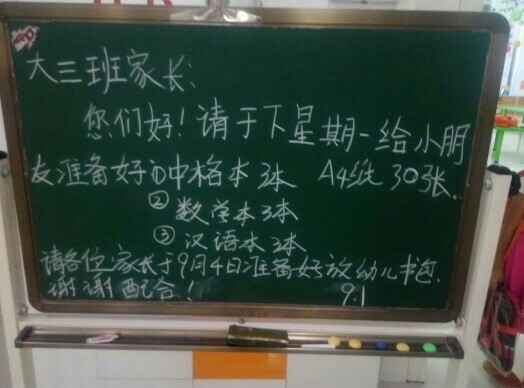 大三班家长:
您们好！请于下星期一给小朋
友准备好①中格本3本 A4纸30张.
②数学本3本
③汉语本3本
请各位家长于9月4日准备好放幼儿书包.
谢谢配合！ 9.1